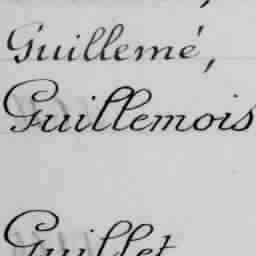 Guillemé,
Guillemois
Guillet